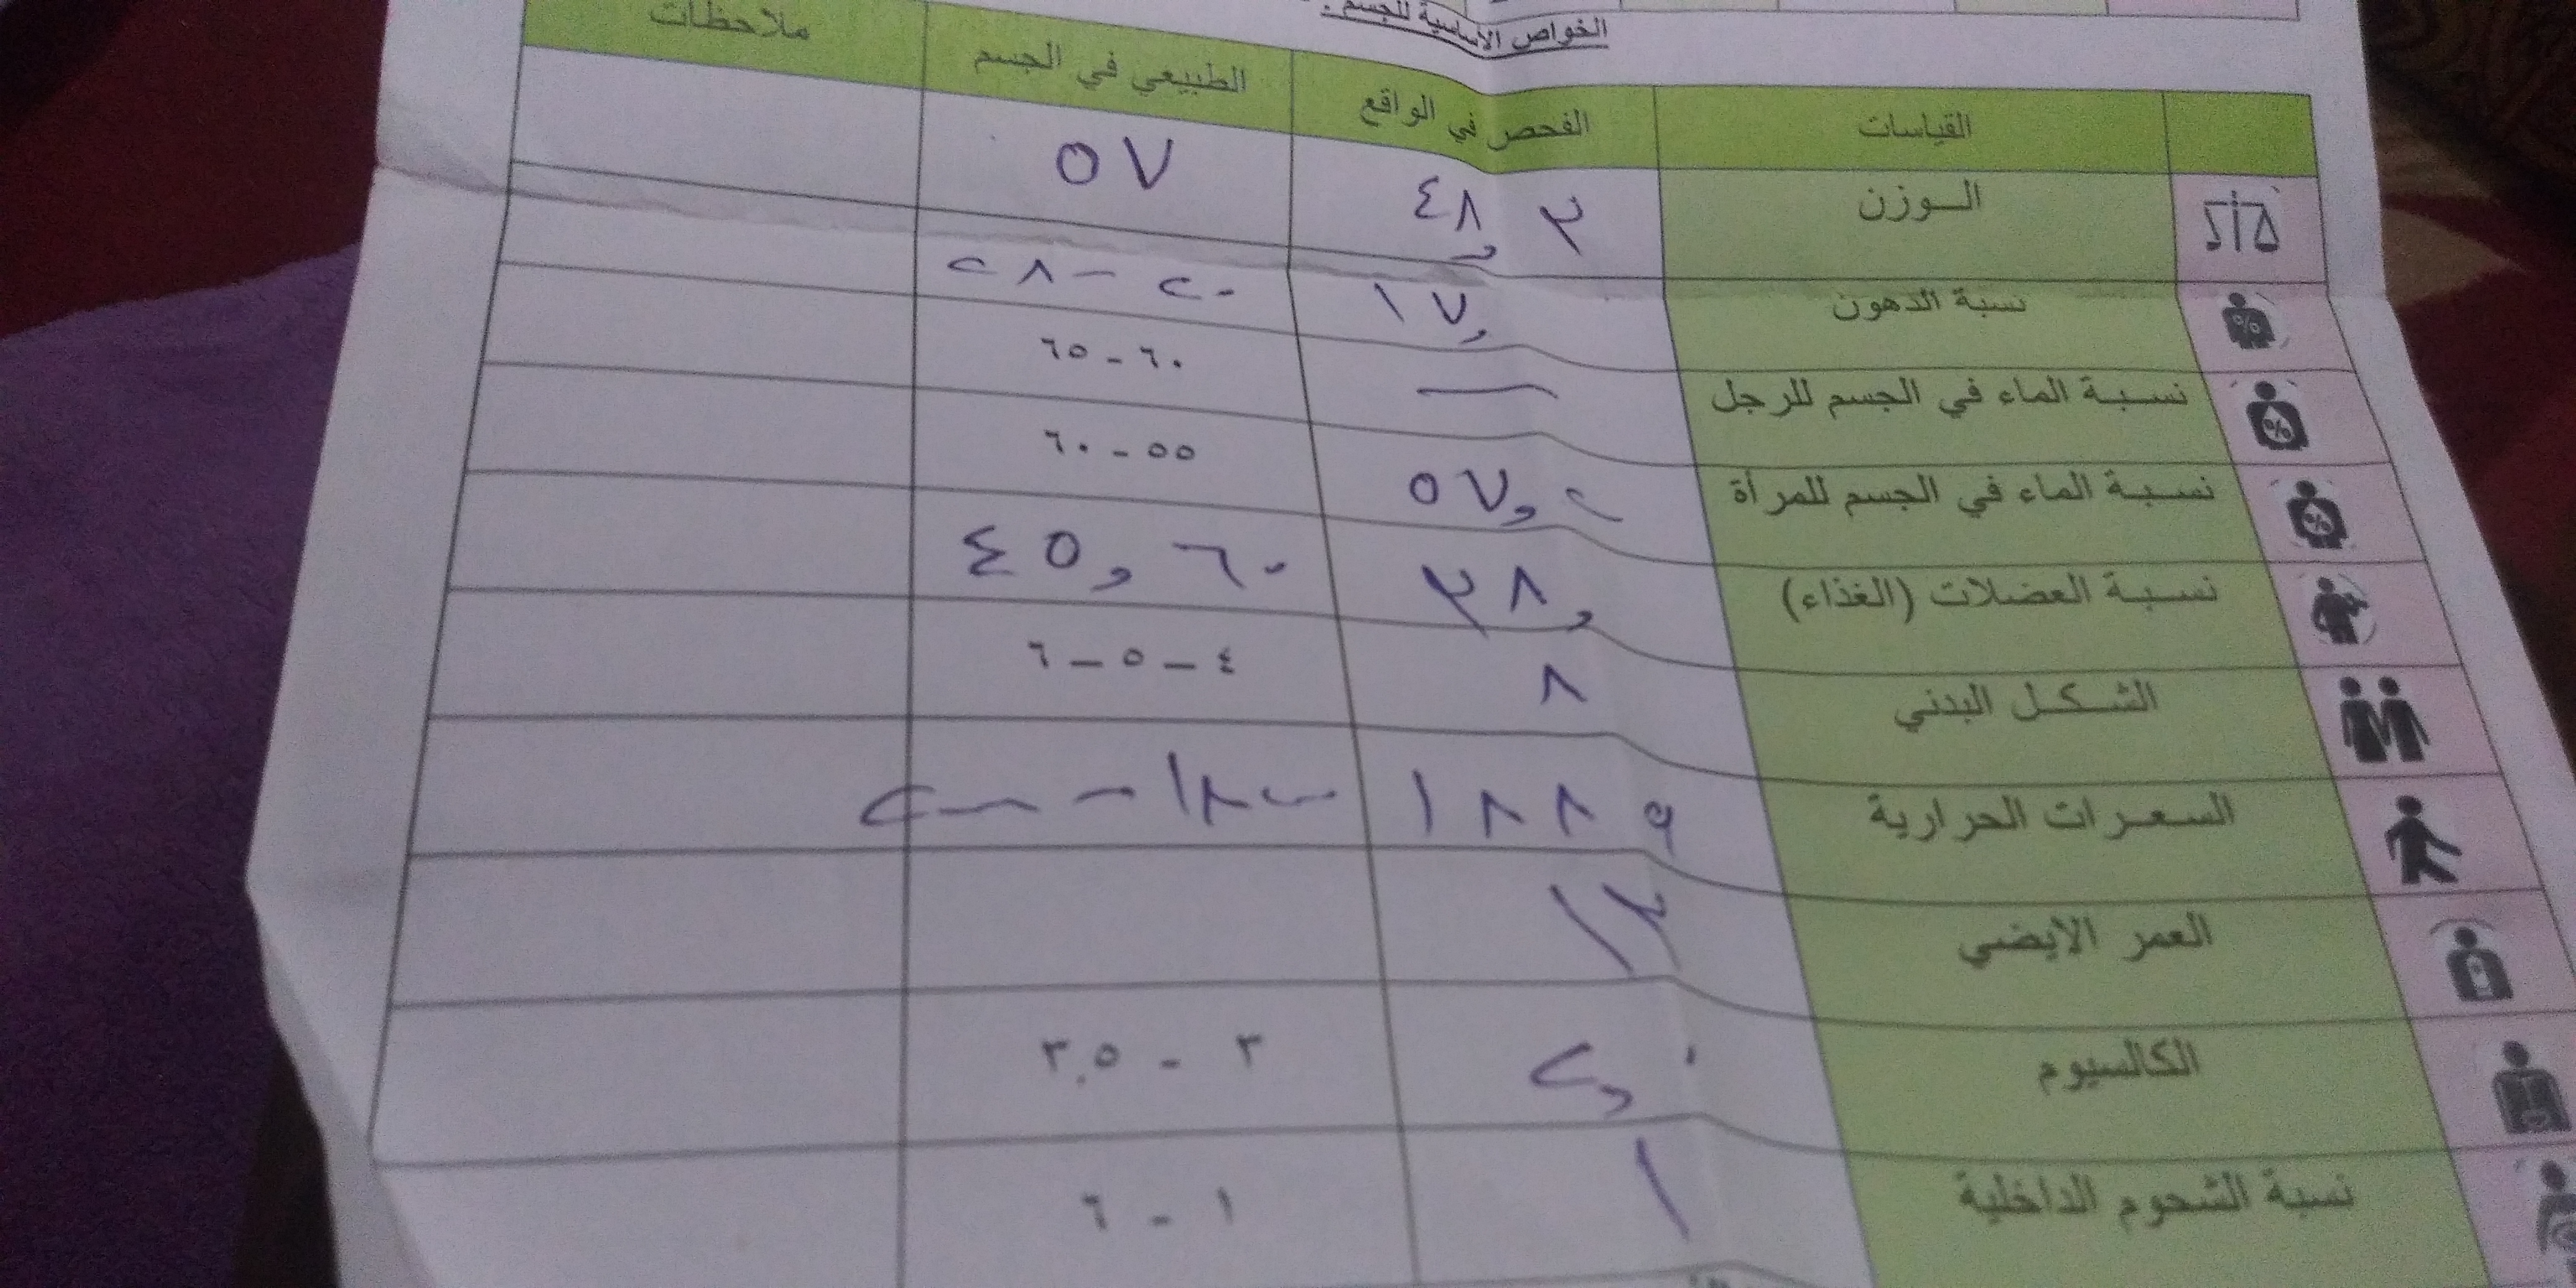 الخواص الأساسية للجسم :
القياسات الفحص في الواقع الطبيعي في الجسم ملاحظات
الـوزن ٤٨,٣ ٥٧
نسبة الدهون ١٧, ٢٠-٢٨
نسبة الماء في الجسم للرجل — ٦٠ - ٦٥
نسبة الماء في الجسم للمرأة ٥٧,٢ ٥٥ - ٦٠
نسبة العضلات (الغذاء) ٣٨, ٤٥,٦٠
الشكل البدني ٨ ٤ - ٥ - ٦
السعرات الحرارية ١٨٨٩
العمر الايضي ١٢
الكالسيوم ٢,٠ ٣ - ٣,٥
نسبة الشحوم الداخلية ١ ١ - ٦